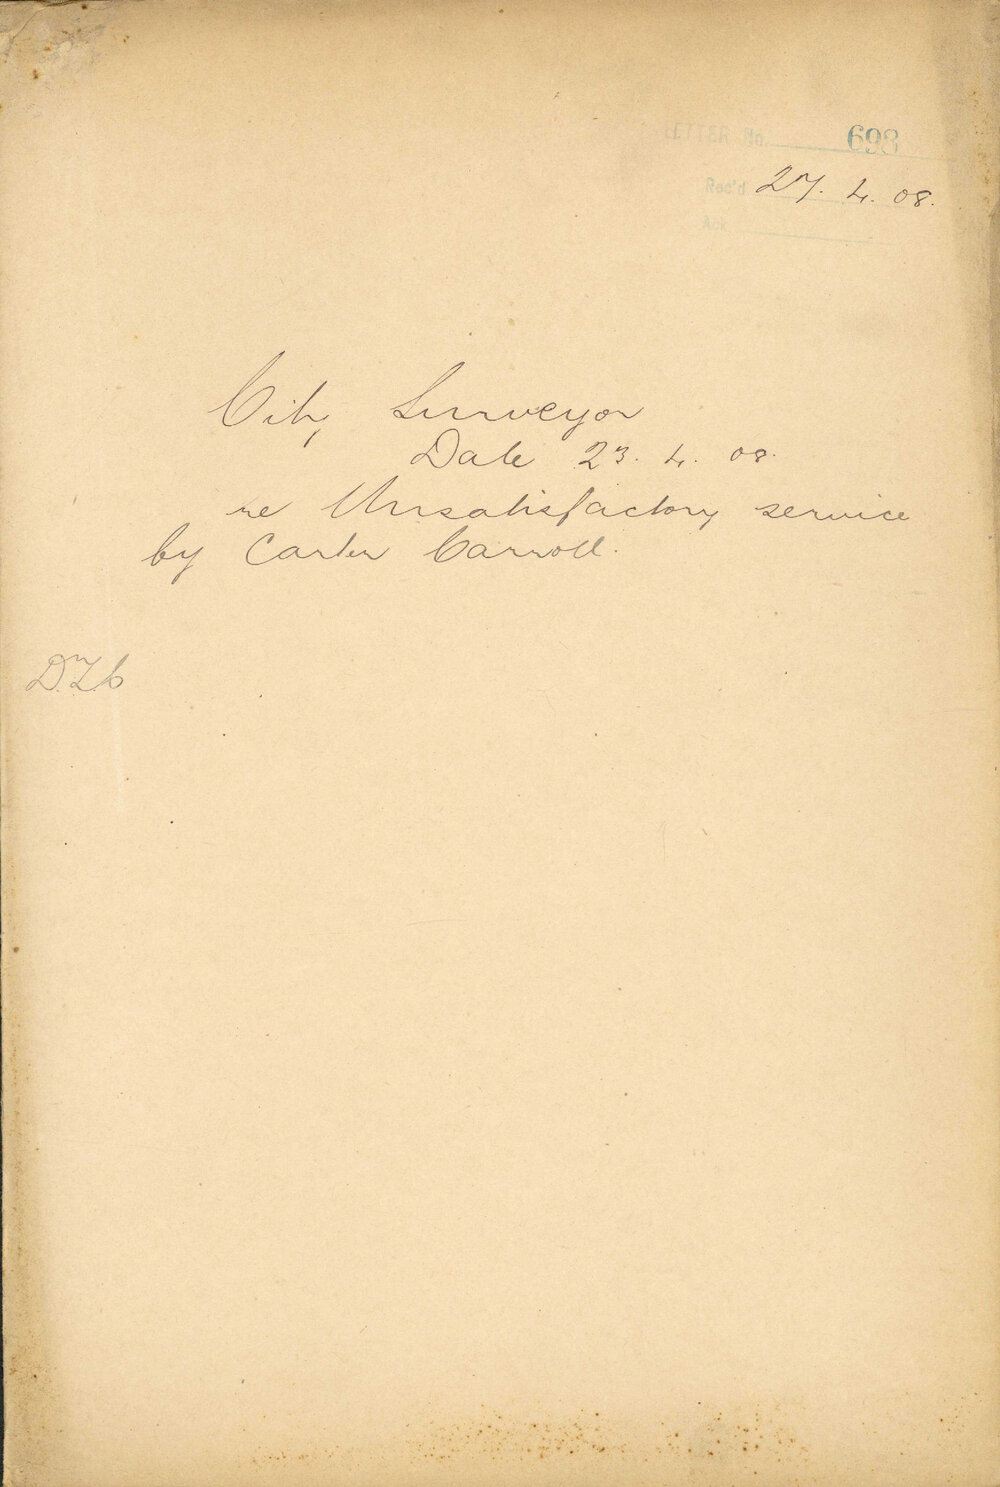 LETTER No. 698
Rec'd 27. 4. 08.
Ack
City Surveyor
Date 23. 4. 08.
re Unsatisfactory service
by Carter Carroll.